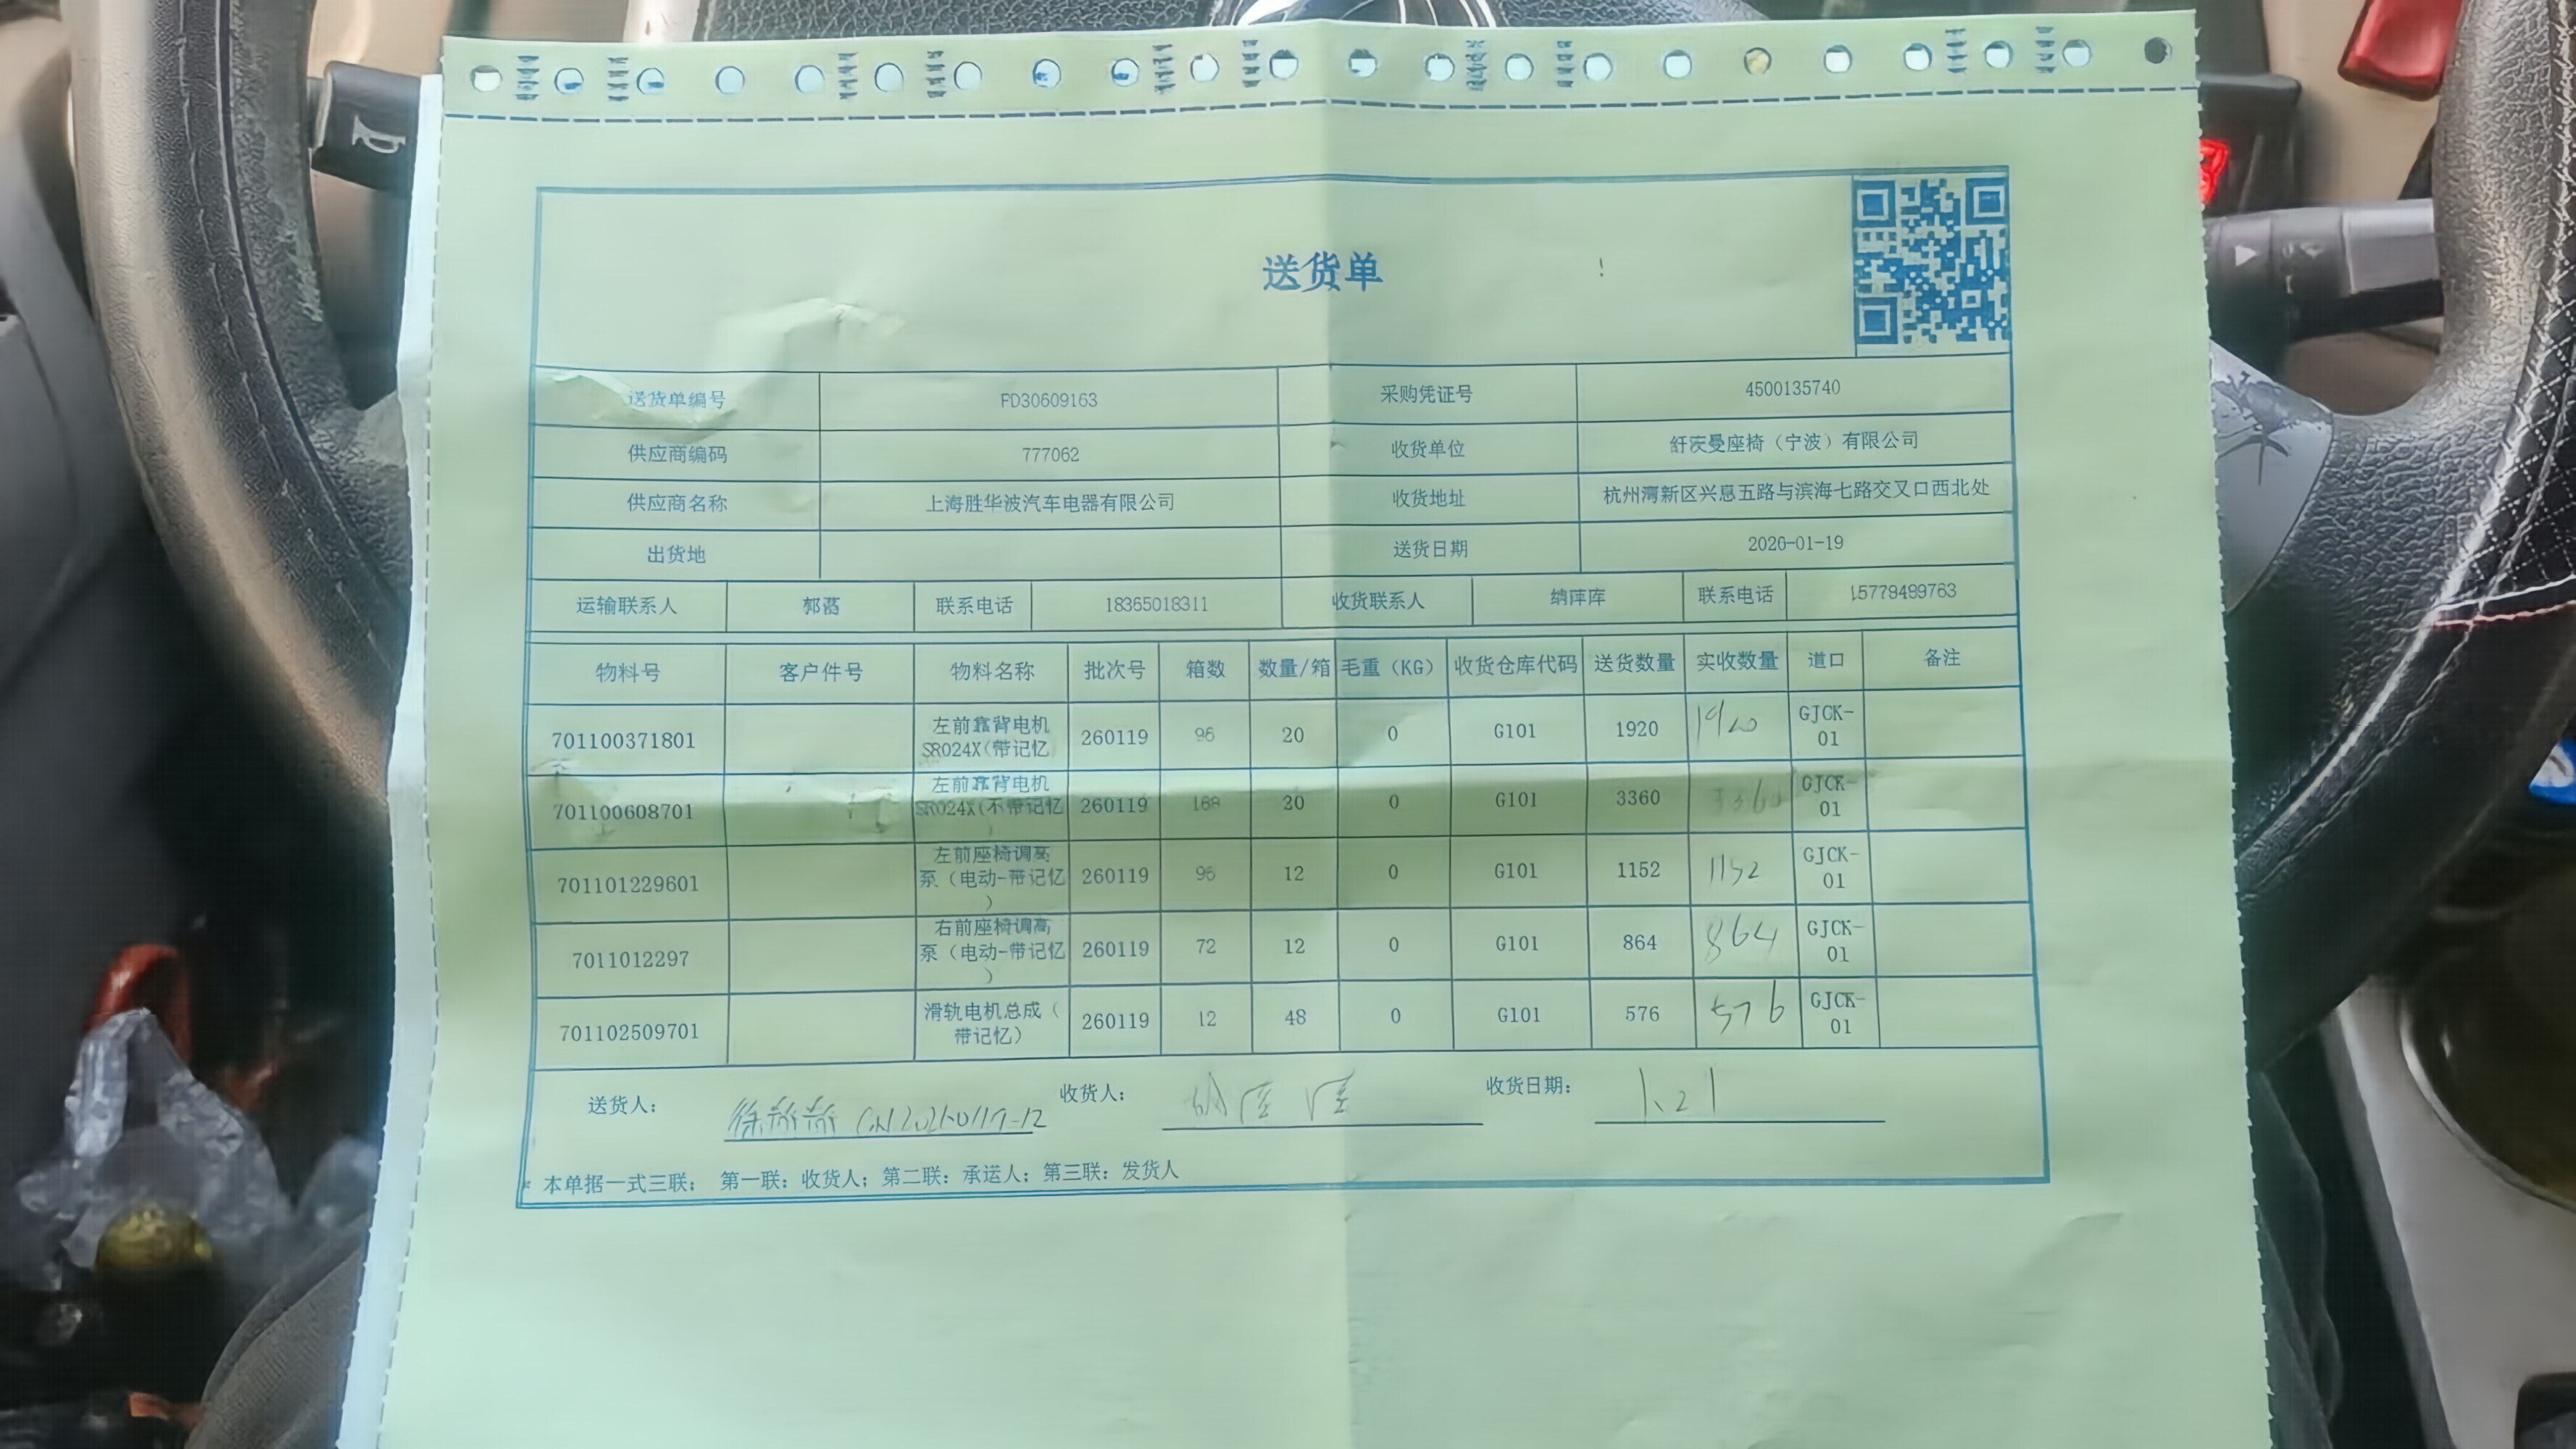 送货单
送货单编号 PD30609163 采购凭证号 4500135740
供应商编码 777062 收货单位 舒茨曼座椅（宁波）有限公司
供应商名称 上海胜华波汽车电器有限公司 收货地址 杭州湾新区兴慈五路与滨海七路交叉口西北处
出货地 送货日期 2020-01-19
运输联系人 联系电话 18365018311 收货联系人 联系电话 15779499763
物料号 客户件号 物料名称 批次号 箱数 数量/箱 毛重（KG） 收货仓库代码 送货数量 实收数量 道口 备注
701100371801 左前靠背电机SR024X(带记忆 260119 96 20 0 G101 1920 1920 GJCK-01
701100608701 左前靠背电机SR024X(不带记忆) 260119 168 20 0 G101 3360 3360 GJCK-01
701101229601 左前座椅调高泵（电动-带记忆） 260119 96 12 0 G101 1152 1152 GJCK-01
7011012297 右前座椅调高泵（电动-带记忆） 260119 72 12 0 G101 864 864 GJCK-01
701102509701 滑轨电机总成（带记忆） 260119 12 48 0 G101 576 576 GJCK-01
送货人： 收货人： 收货日期： 1.21
* 本单据一式三联； 第一联：收货人；第二联：承送人；第三联：发货人